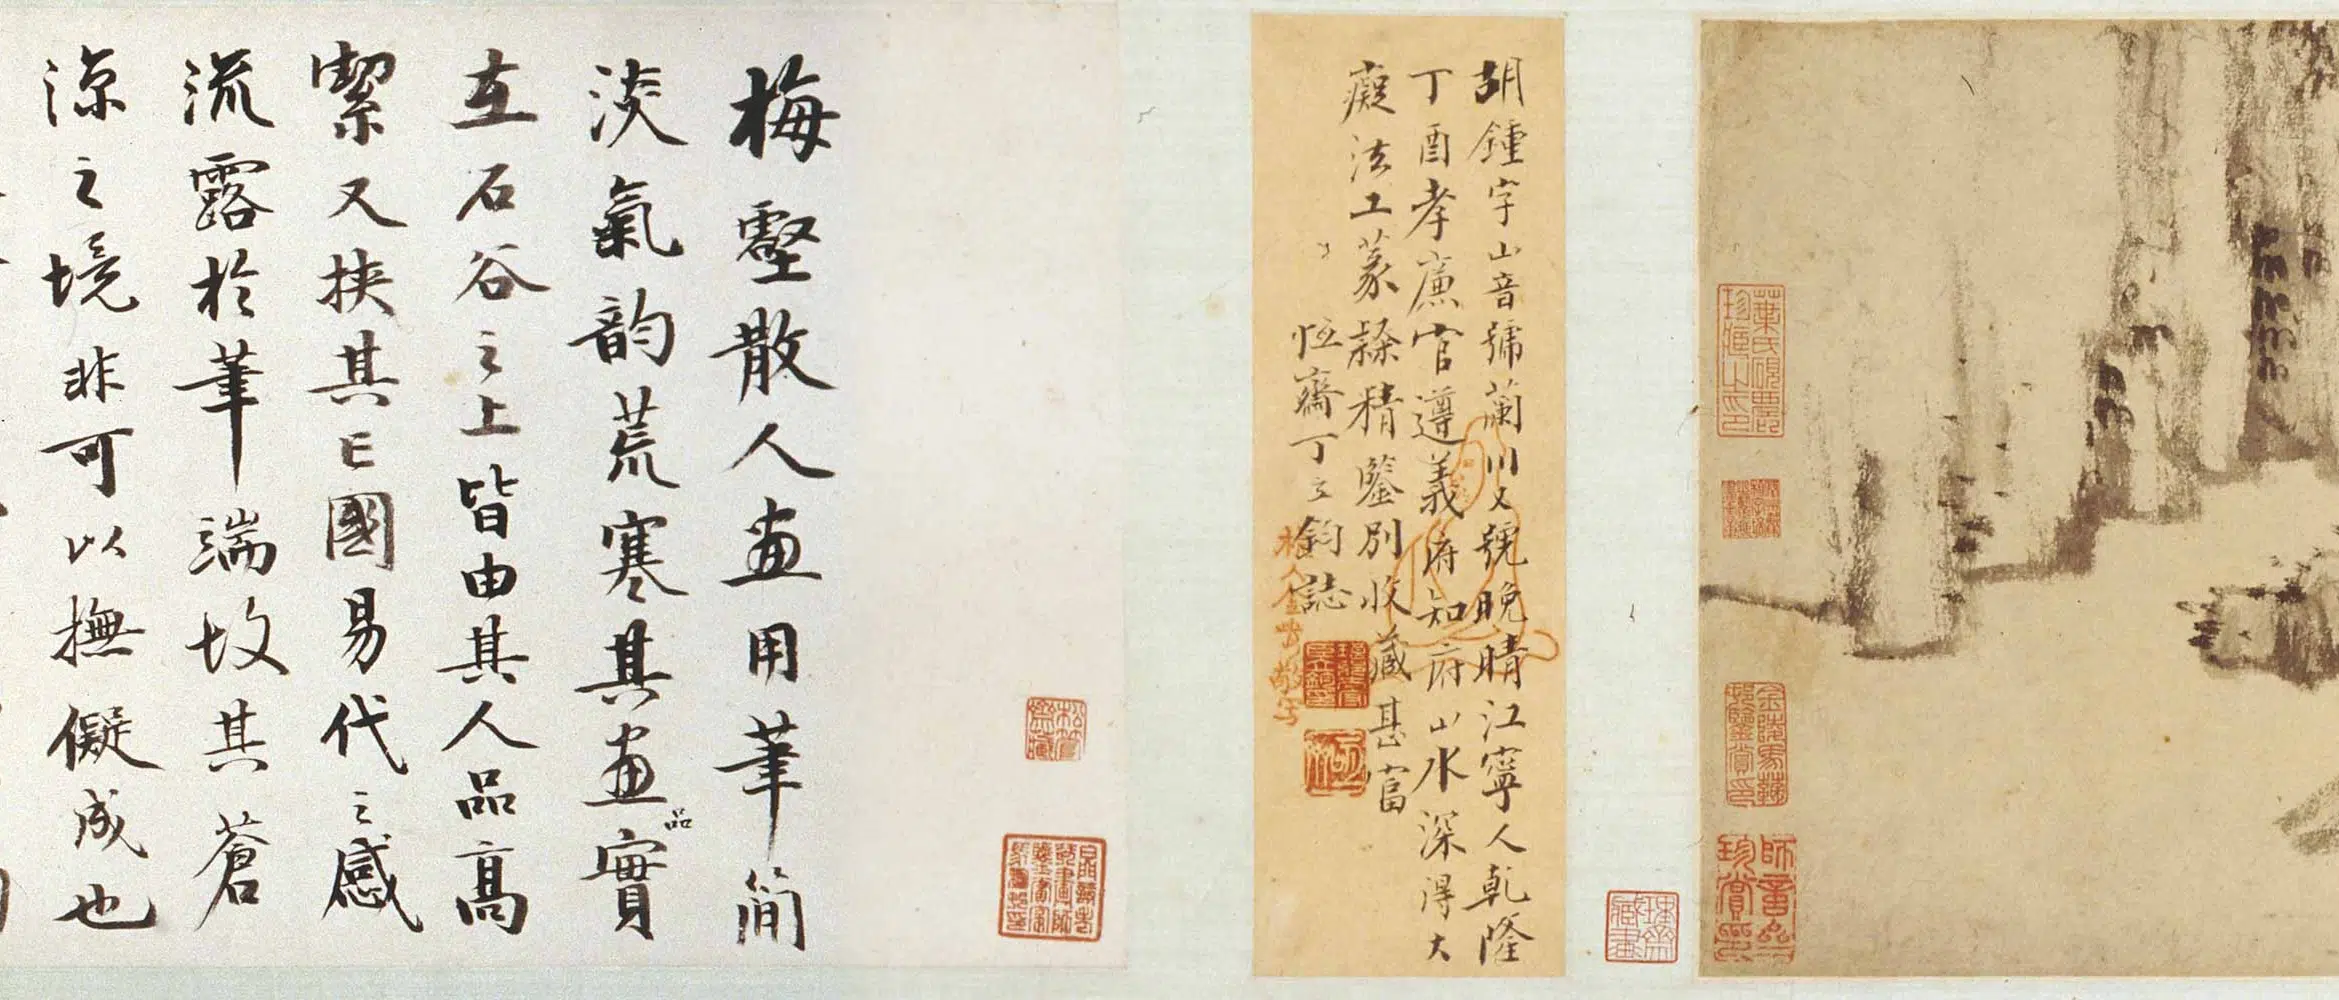 胡鍾字山音號蘭川又號晚晴江寧人乾隆
丁酉孝廉官遵義府知府山水深得大
癡法工篆隸精鑒別收藏甚富
恒齋丁之鈞誌
梅壑散人畫用筆簡
淡氣韵荒寒其畫品實
在石谷之上皆由其人品高
絜又挾其亡國易代之感
流露於筆端故其蒼
涼之境非可以撫儗成也